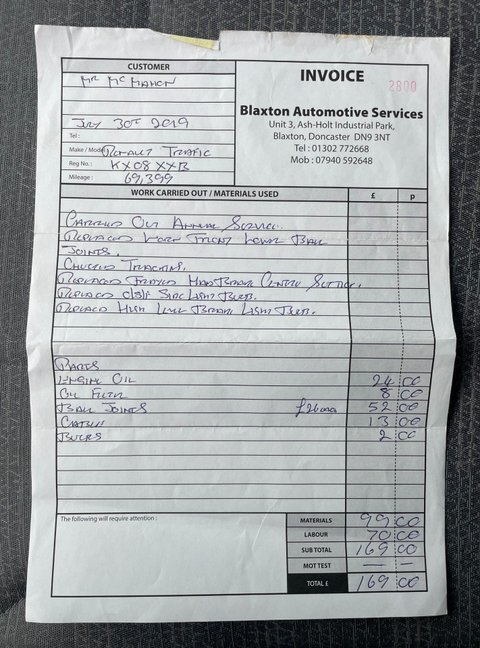 CUSTOMER
Mr McMahon
July 30th 2019
Tel :
Make / Model Renault Traffic
Reg No. : KX08 XXB
Mileage : 69,399
INVOICE
2800
Blaxton Automotive Services
Unit 3, Ash-Holt Industrial Park,
Blaxton, Doncaster DN9 3NT
Tel : 01302 772668
Mob : 07940 592648
WORK CARRIED OUT / MATERIALS USED £ p
Carried Out Annual Service.
Replaced Worn Front Lower Ball
Joints.
Checked Tracking.
Replaced Frayed Handbrake Centre Section.
Replaced o/s/f Side Light Bulb.
Replaced High Level Brake Light Bulb.
Parts
Engine Oil 24 00
Oil Filter 8 00
Ball Joints £26 each 52 00
Cable 13 00
Bulbs 2 00
The following will require attention :
MATERIALS 99 00
LABOUR 70 00
SUB TOTAL 169 00
MOT TEST — —
TOTAL £ 169 00